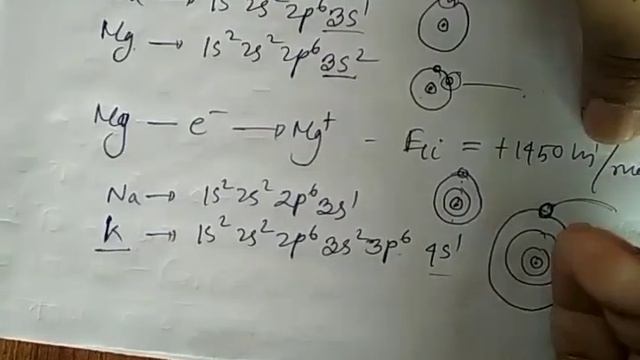 → 1s² 2s² 2p⁶ 3s¹
Mg → 1s² 2s² 2p⁶ 3s²
Mg – e⁻ → Mg⁺ – = +1450 kJ/
Na → 1s² 2s² 2p⁶ 3s¹
K → 1s² 2s² 2p⁶ 3s² 3p⁶ 4s¹